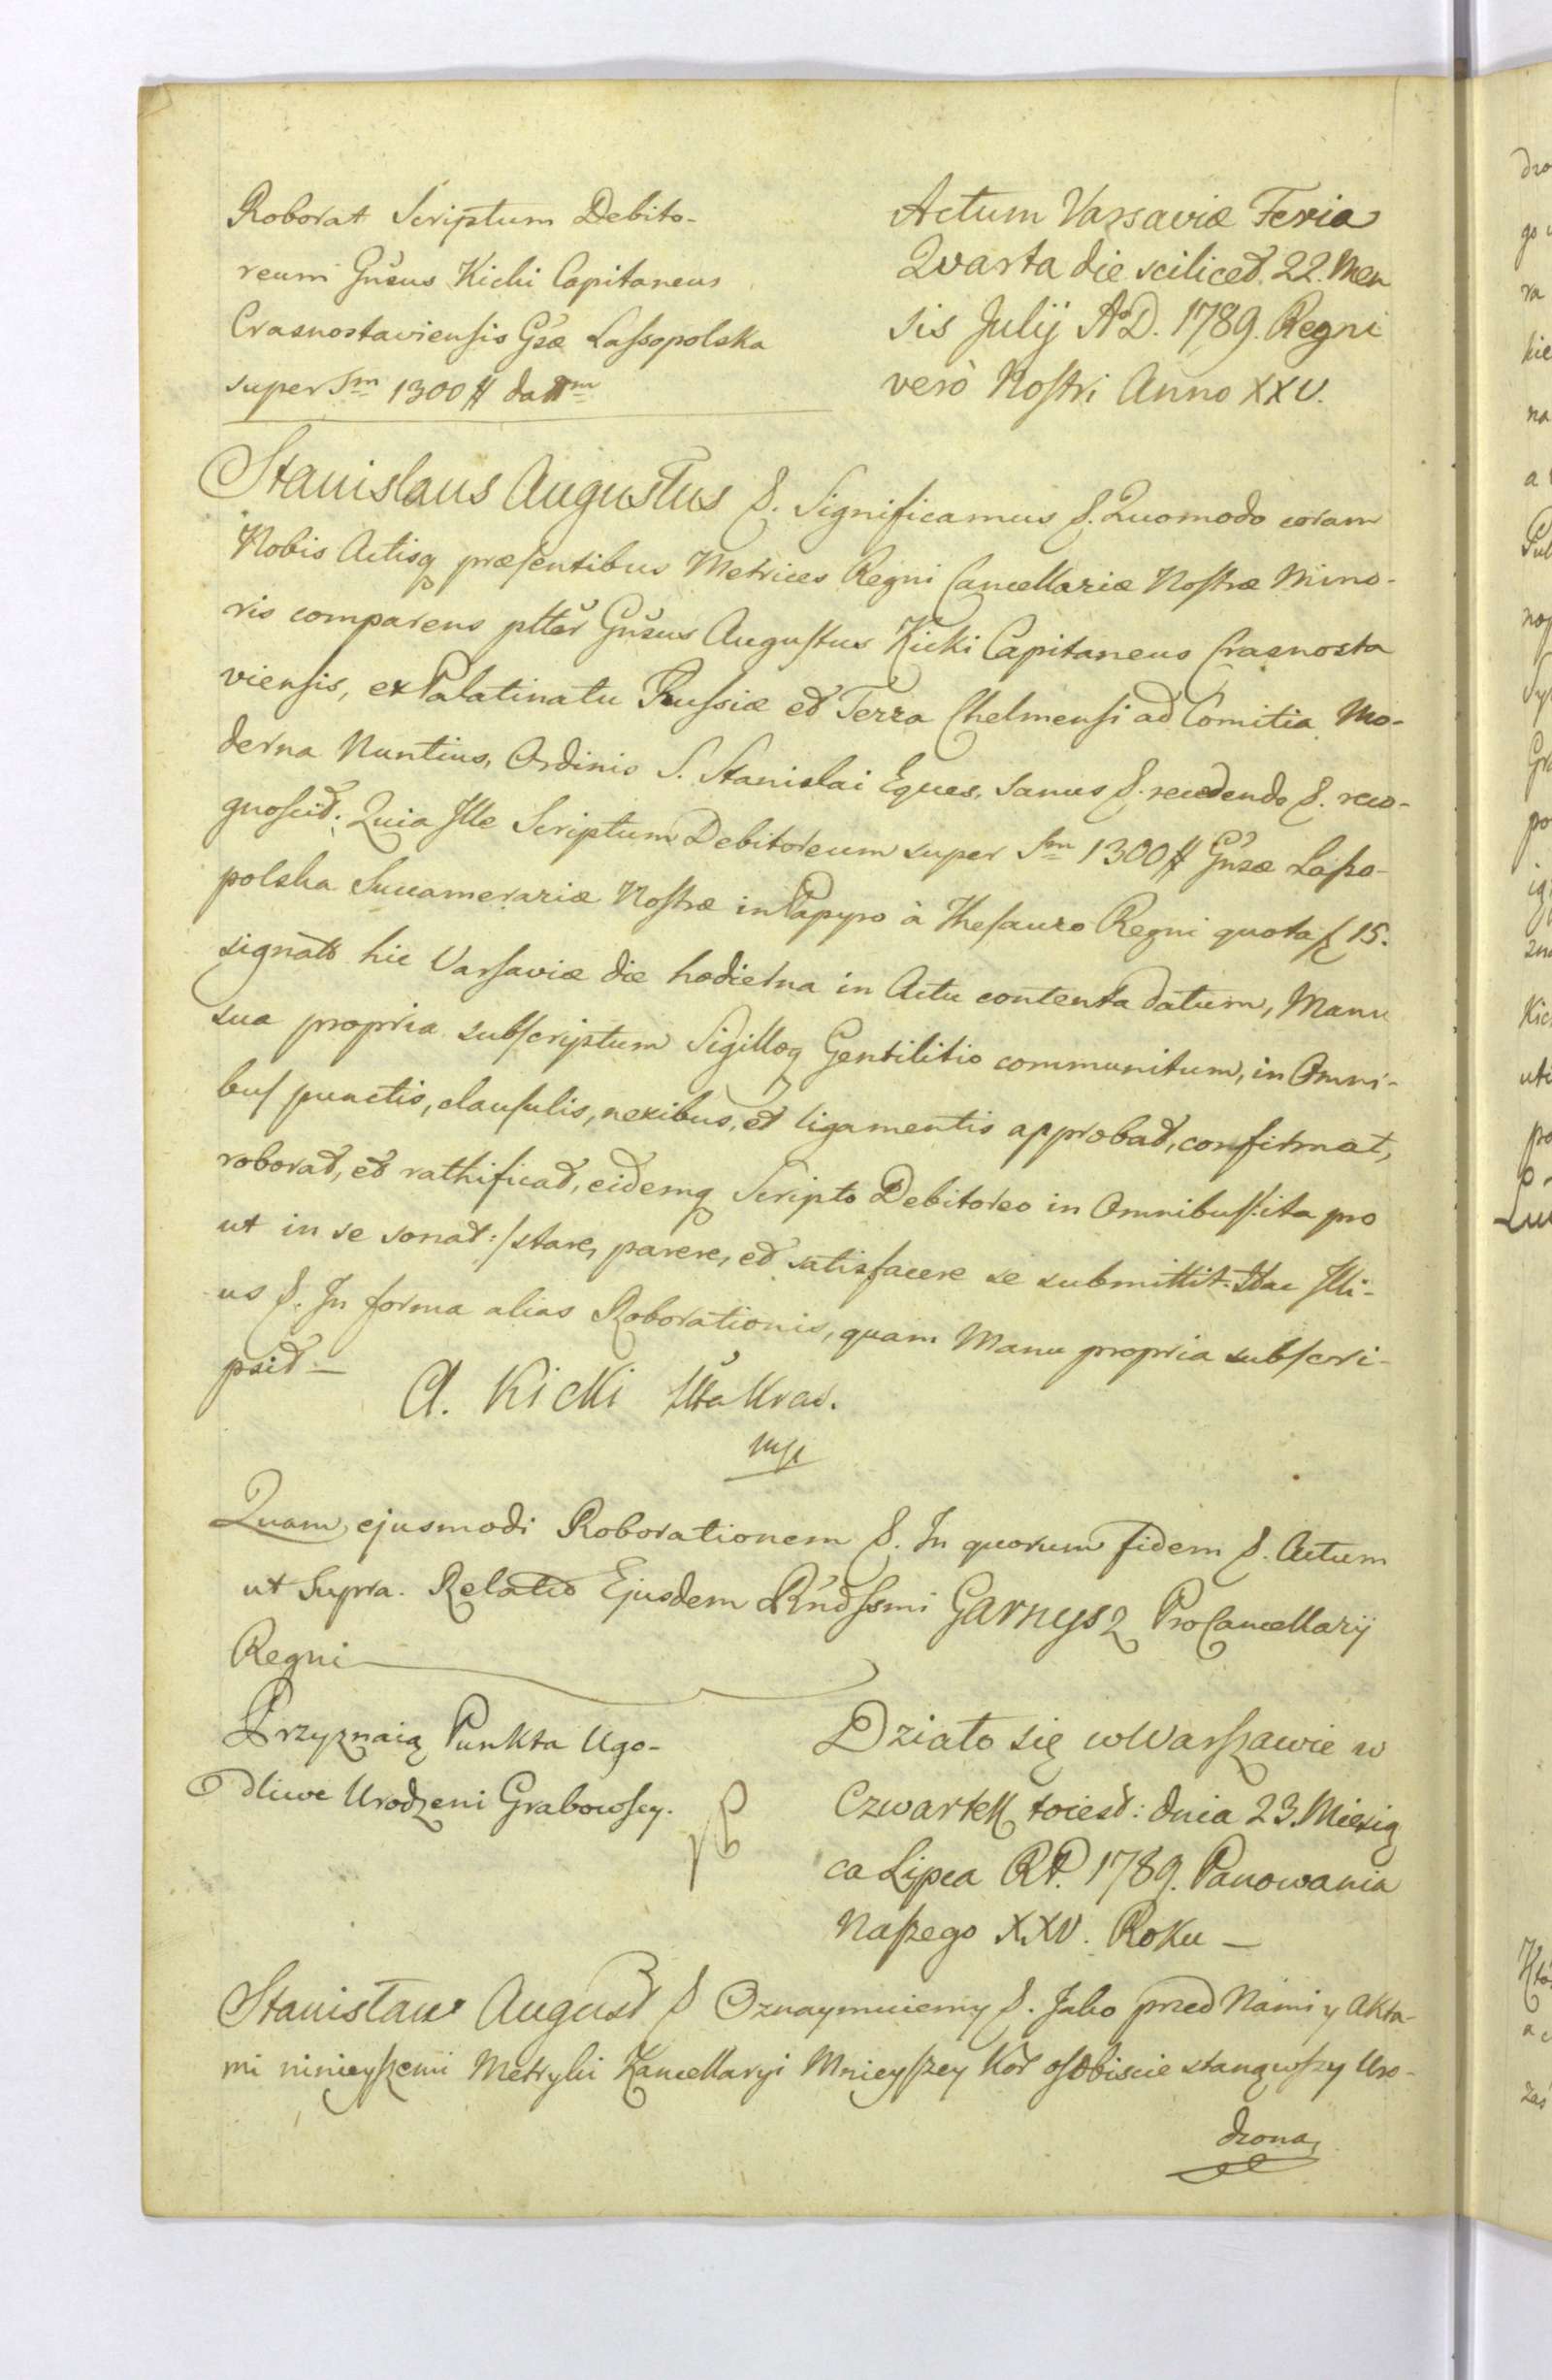 Roborat Scriptum Debito-
reum Gnsus Kicki Capitaneus
Crasnostaviensis Gsæ Lassopolska
super Sm 1300 # datm
Actum Varsaviæ Feria
Qvarta die scilicet 22. Men
sis Julij A.D. 1789. Regni
verò Nostri Anno XXV.
Stanislaus Augustus &. Significamus &. Quomodo coram
Nobis Actisq præsentibus Metrices Regni Cancellariæ Nostræ Mino-
ris comparens pltter Gnsus Augustus Kicki Capitaneus Crasnosta
viensis, ex Palatinatu Russiæ et Terra Chelmensi ad Comitia Mo-
derna Nuntius, Ordinis S. Stanislai Eques, sanus &. recedendo &. reco-
gnoscit: Quia Ille Scriptum Debitoreum super Sm 1300 # Gnsæ Lasso-
polska Succamerariæ Nostræ in Papyro à Thesauro Regni quota f 15.
signato hic Varsaviæ die hodierna in Actu contenta datum, Manu
sua propria subscriptum Sigilloq Gentilitio communitum, in Omni-
bus punctis, clausulis, nexibus, et ligamentis approbat, confirmat,
roborat, et rathificat, eidemq Scripto Debitoreo in Omnibus /: ita pro
ut in se sonat :/ stare, parere, et satisfacere se submittit. Hac Illi-
us &. In forma alias Roborationis, quam Manu propria subscri-
psit —
A. Kicki Stta Kras.
mp
Quam ejusmodi Roborationem &. In quorum fidem &. Actum
ut Supra. Relatio Ejusdem Rndssmi Garnysz ProCancellarij
Regni
Przyznaią Punkta Ugo-
dliwe Urodzeni Grabowscy.
Działo się w Warszawie w
Czwartek toiest: dnia 23. Miesią
ca Lipca RP. 1789. Panowania
Naszego XXV. Roku —
Stanisław August & Oznaymuiemy &. Jako przed Nami y Akta-
mi ninieyszemi Metryki Kancellaryi Mnieyszey Kor osobiscie stanąwszy Uro-
dzona